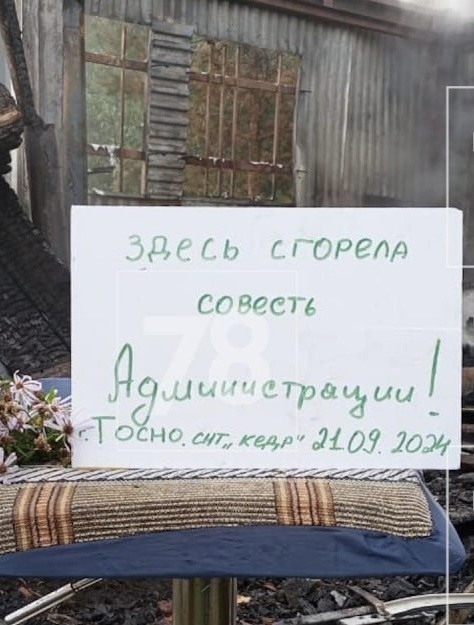 ЗДЕСЬ СГОРЕЛА
СОВЕСТЬ
Администрации!
г. ТОСНО. СНТ„ КЕДР" 21.09. 2024
78